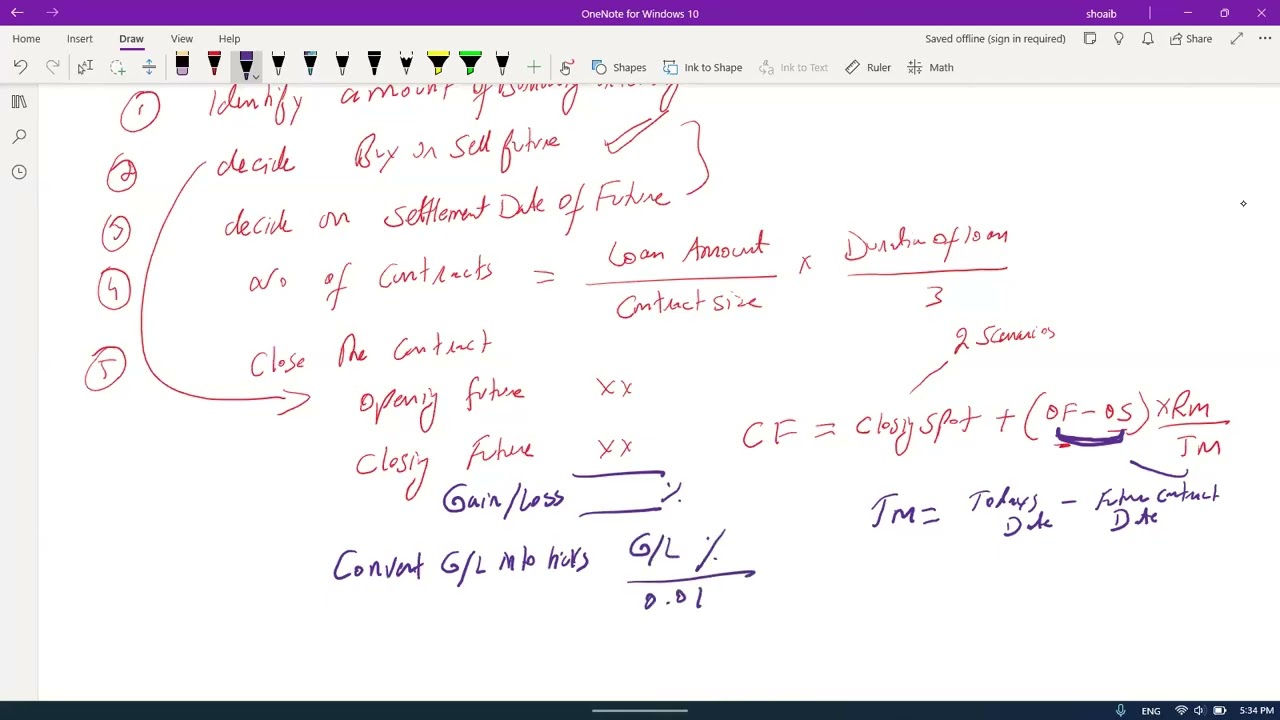 OneNote for Windows 10
shoaib
Home Insert Draw View Help
Saved offline (sign in required)
Share
Shapes
Ink to Shape
Ink to Text
Ruler
Math
1 Identify amount of
2 decide Buy or Sell future
3 decide on Settlement Date of Future
4 no of Contracts = Loan Amount / Contract size × Duration of loan / 3
5 Close the contract
2 Scenarios
opening future XX
CF = Closing Spot + (OF - OS) × Rm / TM
Closing Future XX
Gain/Loss %
TM = Todays Date - Future Contract Date
Convert G/L into ticks G/L % / 0.01
ENG
5:34 PM